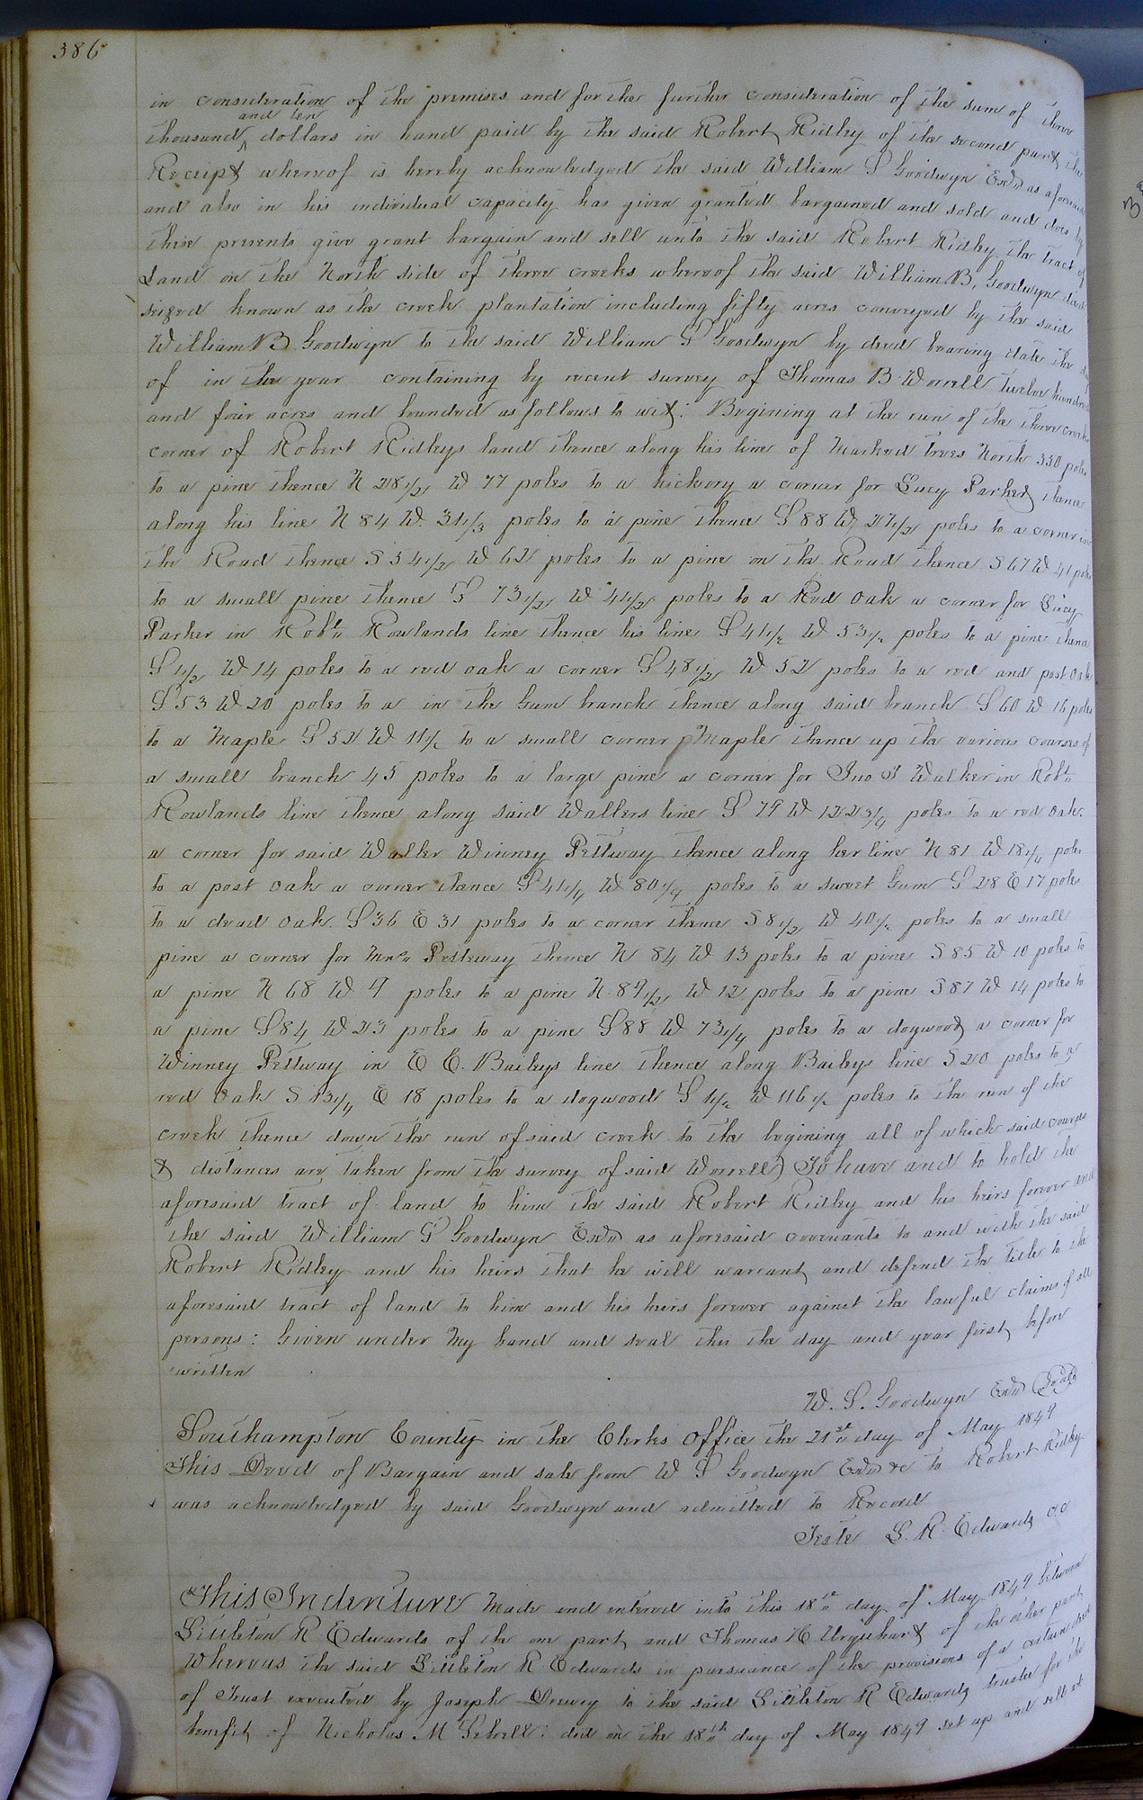 386
in consideration of the premises and for the further consideration of the sum of three
and ten
thousand ‸ dollars in hand paid by the said Robert Ridley of the second part the
Receipt whereof is hereby acknowledged the said William S Goodwyn Exor as aforesaid
and also in his individual capacity has given granted bargained and sold and does by
these presents give grant bargain and sell unto the said Robert Ridley the tract of
Land on the North side of three creeks whereof the said William B. Goodwyn died
seized known as the creek plantation including fifty acres conveyed by the said
William B Goodwyn to the said William S Goodwyn by deed bearing date the
of in the year containing by recent survey of Thomas B Worrell Twelve hundred
and four acres and bounded as follows to wit: Begining at the run of the three creeks
corner of Robert Ridleys land thence along his line of Marked trees North 330 poles
to a pine thence N 28 1/2 W 77 poles to a hickory a corner for Lucy Parker thence
along his line N 84 W 31 1/3 poles to a pine thence S 88 W 27 1/2 poles to a corner in
the Road thence S 54 1/2 W 62 poles to a pine on the Road thence S 67 W 41 poles
to a small pine thence S 73 1/2 W 41 1/2 poles to a Red Oak a corner for Lucy
Parker in Robt. Rowlands line thence his line S 41 1/2 W 53 1/2 poles to a pine thence
S 1 1/2 W 14 poles to a red oak a corner S 48 1/2 W 52 poles to a red and post oak
S 53 W 20 poles to a in the Gum branch thence along said branch S 60 W 16 poles
to a Maple S 52 W 11 1/2 to a small corner Maple thence up the various courses of
a small branch 45 poles to a large pine a corner for Jno J Walker in Robt.
Rowlands line thence along said Wallers line S 79 W 122 3/4 poles to a red oak.
a corner for said Waller Winney Pettway thence along her line N 81 W 18 1/4 poles
to a post oak a corner thence S 41 1/4 W 80 1/4 poles to a sweet Gum S 28 E 17 poles
to a dead oak. S 36 E 31 poles to a corner thence S 8 1/2 W 40 1/2 poles to a small
pine a corner for Mrs. Petteway thence N 84 W 13 poles to a pine S 85 W 10 poles to
a pine N 68 W 9 poles to a pine N. 89 1/2 W 12 poles to a pine S 87 W 14 poles to
a pine S 84 W 23 poles to a pine S 88 W 73 1/4 poles to a dogwood a corner for
Winney Pettway in E E. Baileys line thence along Baileys line S 20 poles to a
red oak S 13 1/4 E 18 poles to a dogwood S 1 1/2 W 116 1/2 poles to the run of the
creek thence down the run of said creek to the begining all of which said courses
& distances are taken from the survey of said Worrell) To have and to hold the
aforesaid tract of land to him the said Robert Ridley and his heirs forever and
the said William S Goodwyn Exor as aforesaid covenants to and with the said
Robert Ridley and his heirs that he will warrant and defend the title to the
aforesaid tract of land to him and his heirs forever against the lawful claims of all
persons: Given under My hand and seal this the day and year first before
written
W. S. Goodwyn Exor (Seal)
Southampton County in the Clerks Office the 21st day of May 1849
This Deed of Bargain and sale from W S Goodwyn Exor &c to Robert Ridley
was acknowledged by said Goodwyn and admitted to Record
Teste L. R. Edwards cc
This Indenture Made and entered into this 18th day of May 1849 between
Littleton R Edwards of the one part and Thomas H Urquhart of the other part
Whereas the said Littleton R Edwards in pursuance of the provisions of a certain deed
of Trust executed by Joseph Drewy to the said Littleton R Edwards trustee for the
benefit of Nicholas M Sebrell: did on the 18th day of May 1849 set up and sell at